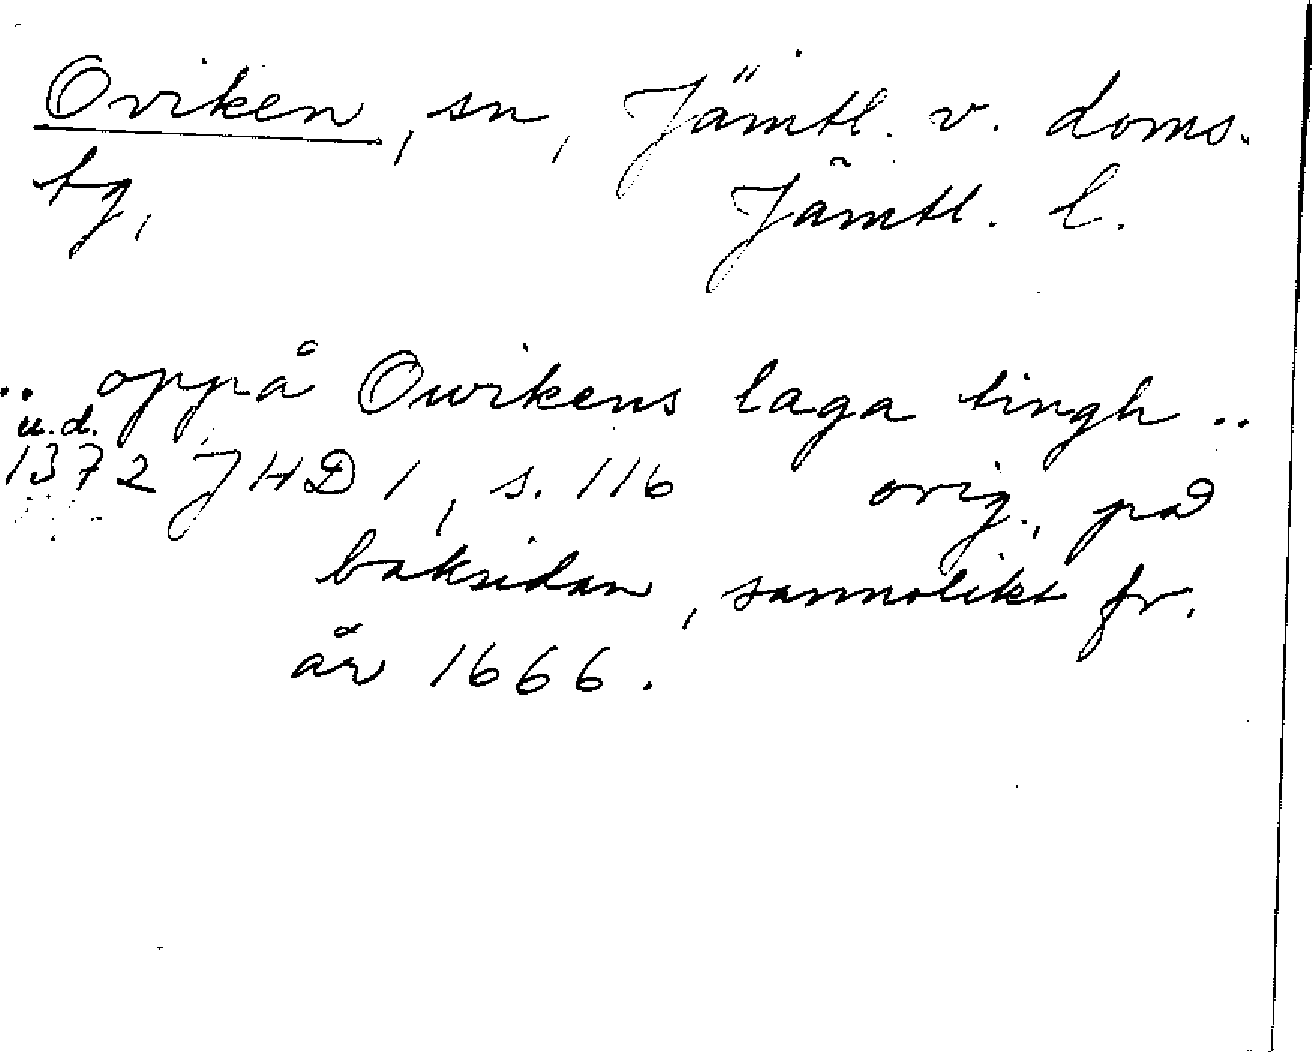 Oviken, sn, Jämtl. v. doms.
tg, Jämtl. l.
.. oppå Owikens laga tingh ..
u.d.
1372 JHD 1, s. 116 orig., på
baksidan, sannolikt fr.
år 1666.